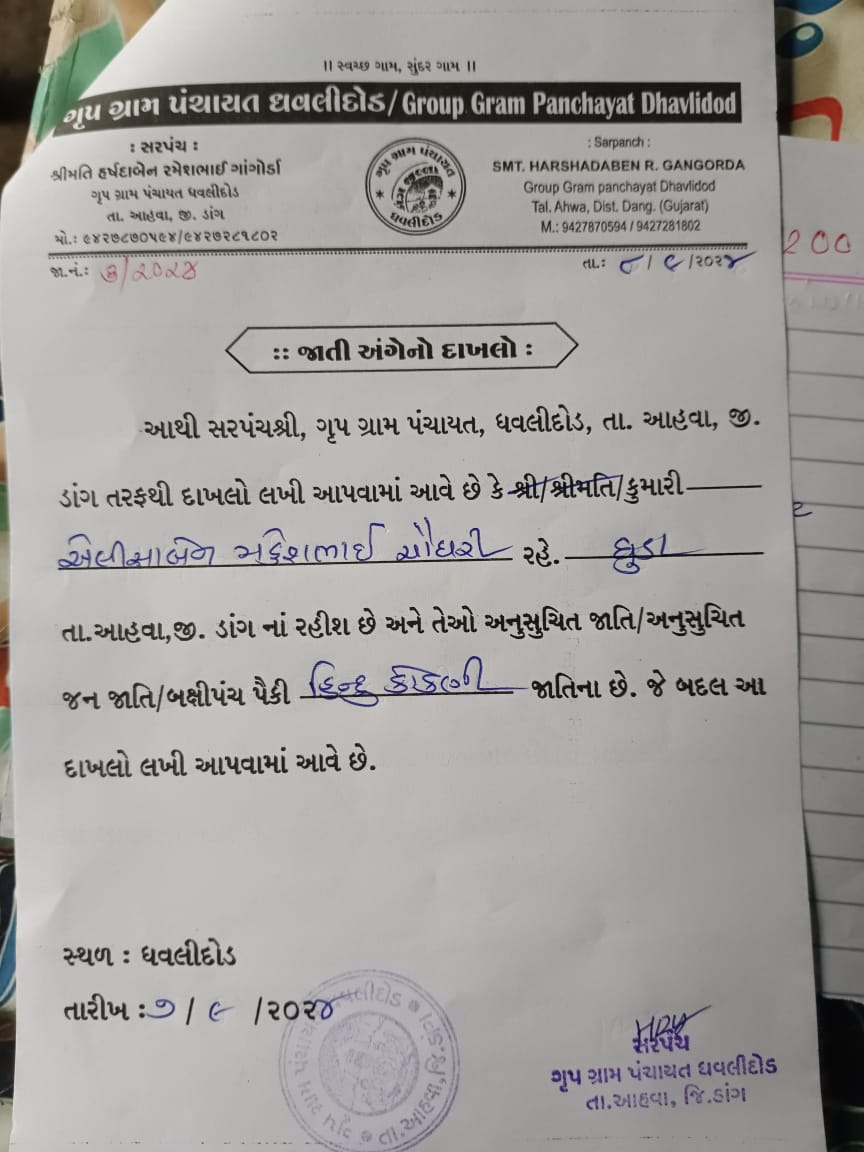 ॥ સ્વચ્છ ગામ, સુંદર ગામ ॥
ગૃપ ગ્રામ પંચાયત ધવલીદોડ/ Group Gram Panchayat Dhavlidod
: સરપંચ :
શ્રીમતિ હર્ષદાબેન રમેશભાઈ ગાંગોર્ડા
ગૃપ ગ્રામ પંચાયત ધવલીદોડ
તા. આહવા, જી. ડાંગ
મો.: ૯૪૨૭૮૭૦૫૯૪/૯૪૨૭૨૮૧૮૦૨
ગૃપ ગ્રામ પંચાયત
ધવલીદોડ
: Sarpanch :
SMT. HARSHADABEN R. GANGORDA
Group Gram panchayat Dhavlidod
Tal. Ahwa, Dist. Dang. (Gujarat)
M.: 9427870594 / 9427281802
જા.નં.: /૨૦૨૪
તા.: ૮/ ૯/૨૦૨૪
200
:: જાતી અંગેનો દાખલો :
આથી સરપંચશ્રી, ગૃપ ગ્રામ પંચાયત, ધવલીદોડ, તા. આહવા, જી.
ડાંગ તરફથી દાખલો લખી આપવામાં આવે છે કે શ્રી/શ્રીમતિ/કુમારી
એલીસાબેન મુકેશભાઈ ચૌધરી રહે.
તા.આહવા,જી. ડાંગ નાં રહીશ છે અને તેઓ અનુસુચિત જાતિ/અનુસુચિત
જન જાતિ/બક્ષીપંચ પૈકી હિન્દુ જાતિના છે. જે બદલ આ
દાખલો લખી આપવામાં આવે છે.
સ્થળ : ધવલીદોડ
તારીખ :૭/ ૯ /૨૦૨૪
સરપંચ
ગૃપ ગ્રામ પંચાયત ધવલીદોડ
તા.આહવા, જિ.ડાંગ